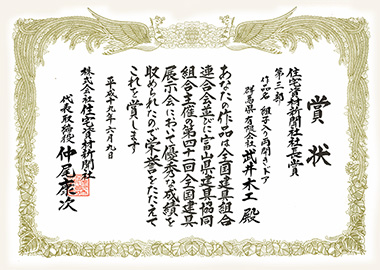 賞状
住宅資材新聞社社長賞
第三部
作品名 組子入り両開きドア
群馬県 有限会社 武井木工 殿
あなたの作品は全国建具組合
連合会並びに富山県建具協同
組合主催の第四十一回全国建具
展示会において優秀な成績を
収められたので栄誉をたたえて
これを賞します
平成十九年六月九日
株式会社住宅資材新聞社
代表取締役 仲尾慶次